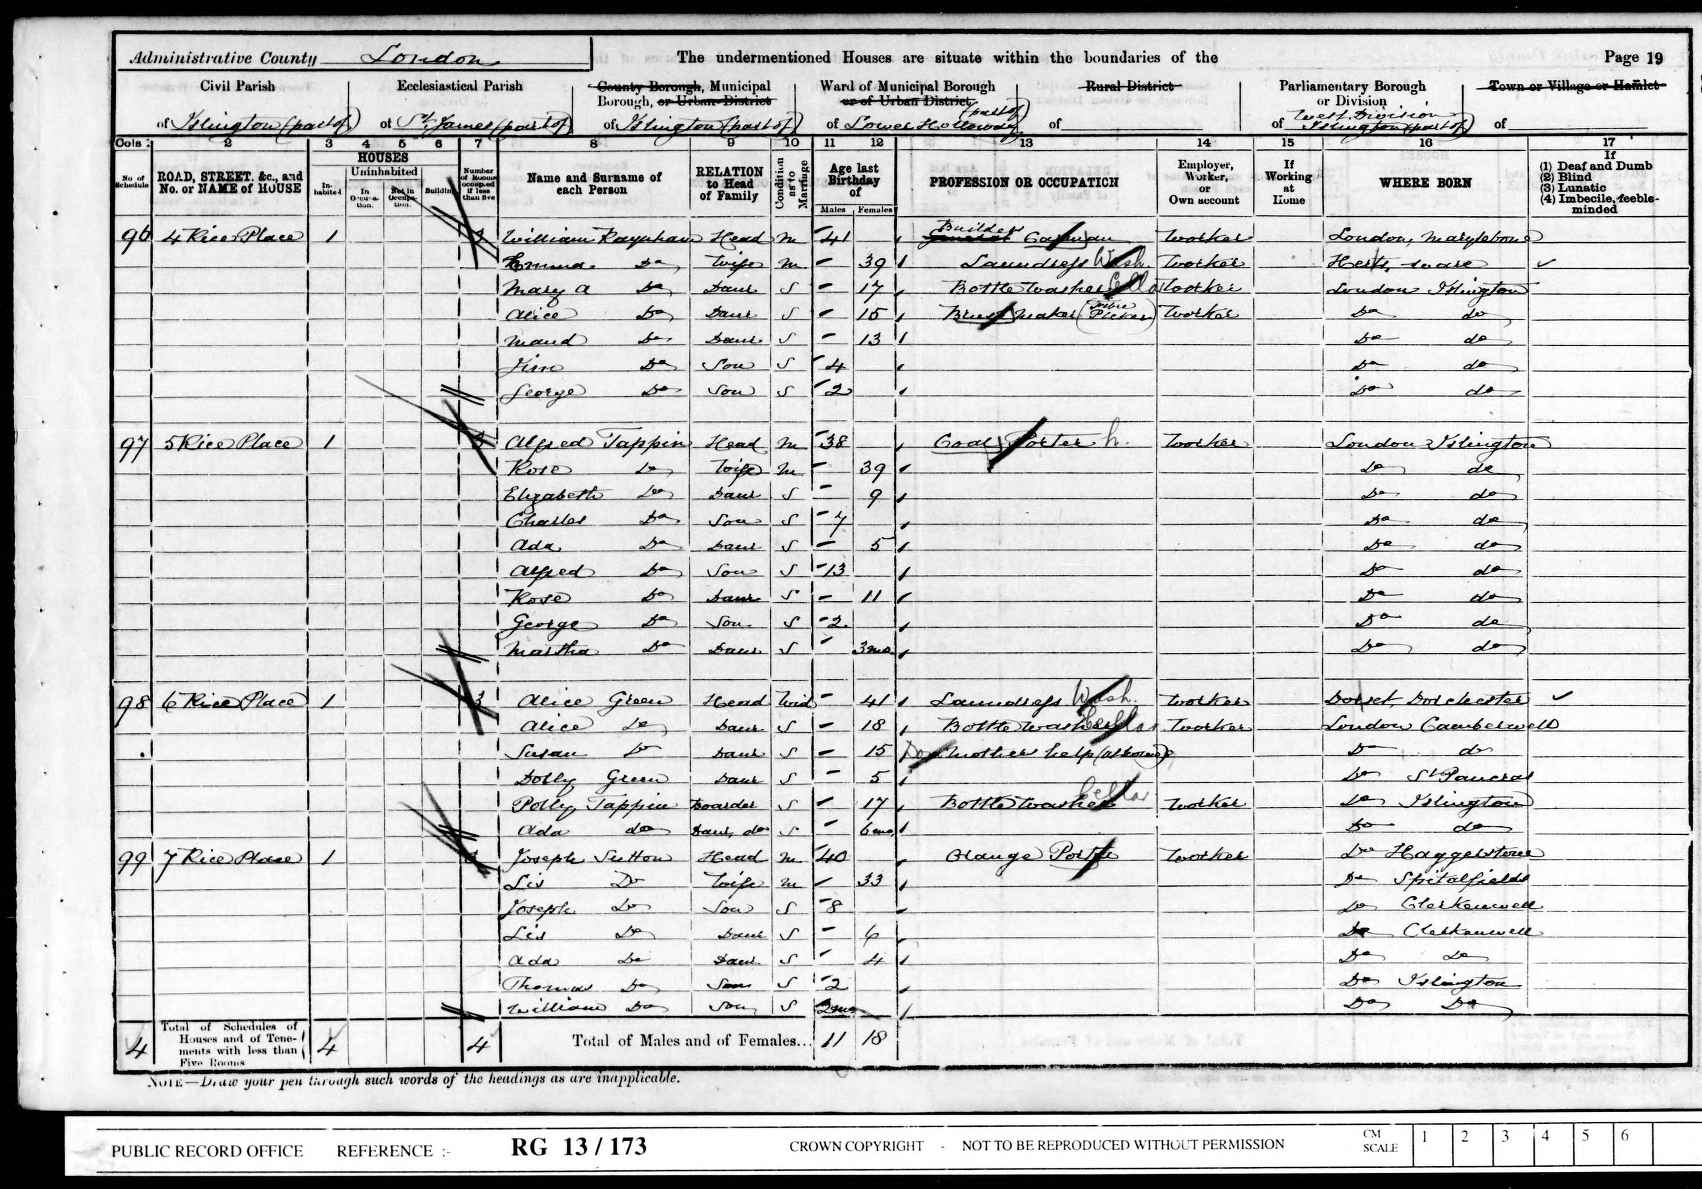 Administrative County London The undermentioned Houses are situate within the boundaries of the Page 19
Civil Parish Ecclesiastical Parish County Borough, Municipal Borough, or Urban District Ward of Municipal Borough or of Urban District Rural District Parliamentary Borough or Division Town or Village or Hamlet
of Islington (part of) of St. James (part of) of Islington (part of) of Lower Holloway (part of) of of West Division Islington (part of) of
Cols: 2 3 4 5 6 7 8 9 10 11 12 13 14 15 16 17
No. of Schedule ROAD, STREET, &c., and No. or NAME of HOUSE HOUSES Inhabited Uninhabited In Occupation. Not in Occupation. Building Number of Rooms occupied if less than five Name and Surname of each Person RELATION to Head of Family Condition as to Marriage Age last Birthday of Males Females PROFESSION OR OCCUPATION Employer, Worker, or Own account If Working at Home WHERE BORN If (1) Deaf and Dumb (2) Blind (3) Lunatic (4) Imbecile, feeble-minded
96 4 Rice Place 1 William Raynham Head M 41 Builders General Carman Worker London, Marylebone
Emma Do Wife M - 39 Laundress Wash Worker Herts, Ware
Mary A Do Daur S - 17 Bottle washer Cellar Worker London Islington
Alice Do Daur S - 15 Brush maker (Picker) Worker Do do
Maud Do Daur S - 13 Do do
Jim Do Son S 4 Do do
George Do Son S 2 Do do
97 5 Rice Place 1 3 Alfred Tappin Head M 38 Coal Porter h. Worker London Islington
Rose Do Wife M - 39 Do do
Elizabeth Do Daur S - 9 Do do
Charles Do Son S 7 Do do
Ada Do Daur S - 5 Do do
Alfred Do Son S 13 Do do
Rose Do Daur S - 11 Do do
George Do Son S 2 Do do
Martha Do Daur S - 3mo Do do
98 6 Rice Place 1 3 Alice Green Head Wid - 41 Laundress Wash. Worker Dorset, Dorchester
Alice Do Daur S - 18 Bottle washer Cellar Worker London Camberwell
Susan Do Daur S - 15 Dom Mothers help (at home) Do do
Dolly Green Daur S - 5 Do St Pancras
Polly Tappin Boarder S - 17 Bottle washer Cellar Worker Do Islington
Ada do Daur, do S - 6mo Do do
99 7 Rice Place 1 Joseph Sutton Head M 40 Orange Porter Worker Do Haggerstone
Lis Do Wife M - 33 Do Spitalfields
Joseph Do Son S 8 Do Clerkenwell
Lis Do Daur S - 6 Do Clerkenwell
Ada Do Daur S - 4 Do Do
Thomas Do Son S 2 Do Islington
William Do Son S 2mo Do Do
4 Total of Schedules of Houses and of Tenements with less than Five Rooms 4 4 Total of Males and of Females... 11 18
NOTE—Draw your pen through such words of the headings as are inapplicable.
PUBLIC RECORD OFFICE REFERENCE :- RG 13 / 173 CROWN COPYRIGHT - NOT TO BE REPRODUCED WITHOUT PERMISSION CM SCALE 1 2 3 4 5 6